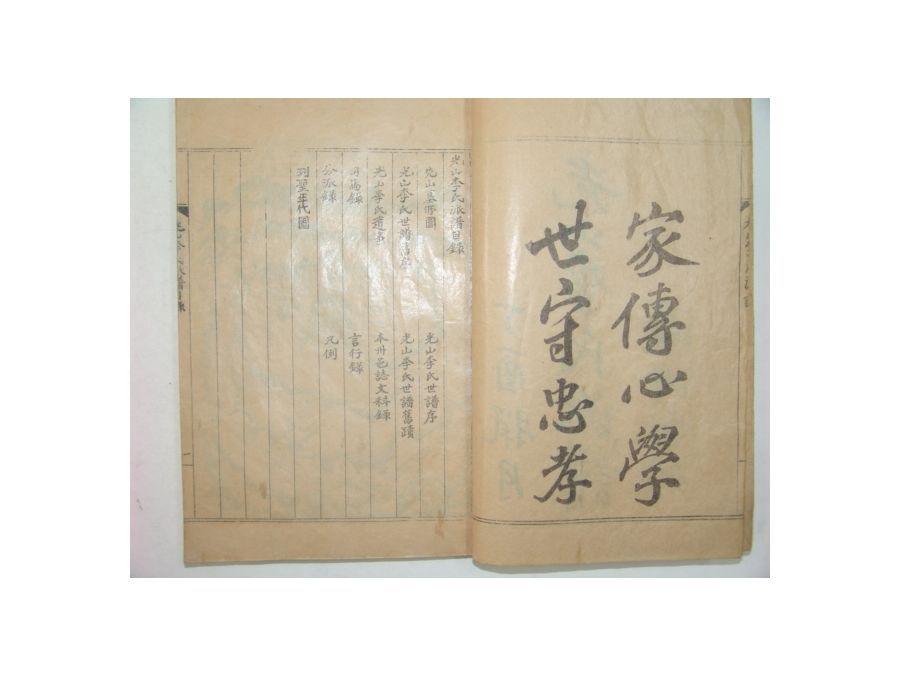 家傳心學
世守忠孝
光山李氏派譜目錄
先山墓所圖
光山李氏世譜序
光山李氏世譜舊序
光山李氏世譜舊蹟
光山李氏遺事
本州邑誌文科錄
司馬錄
言行錄
分派錄
凡例
列聖年代圖